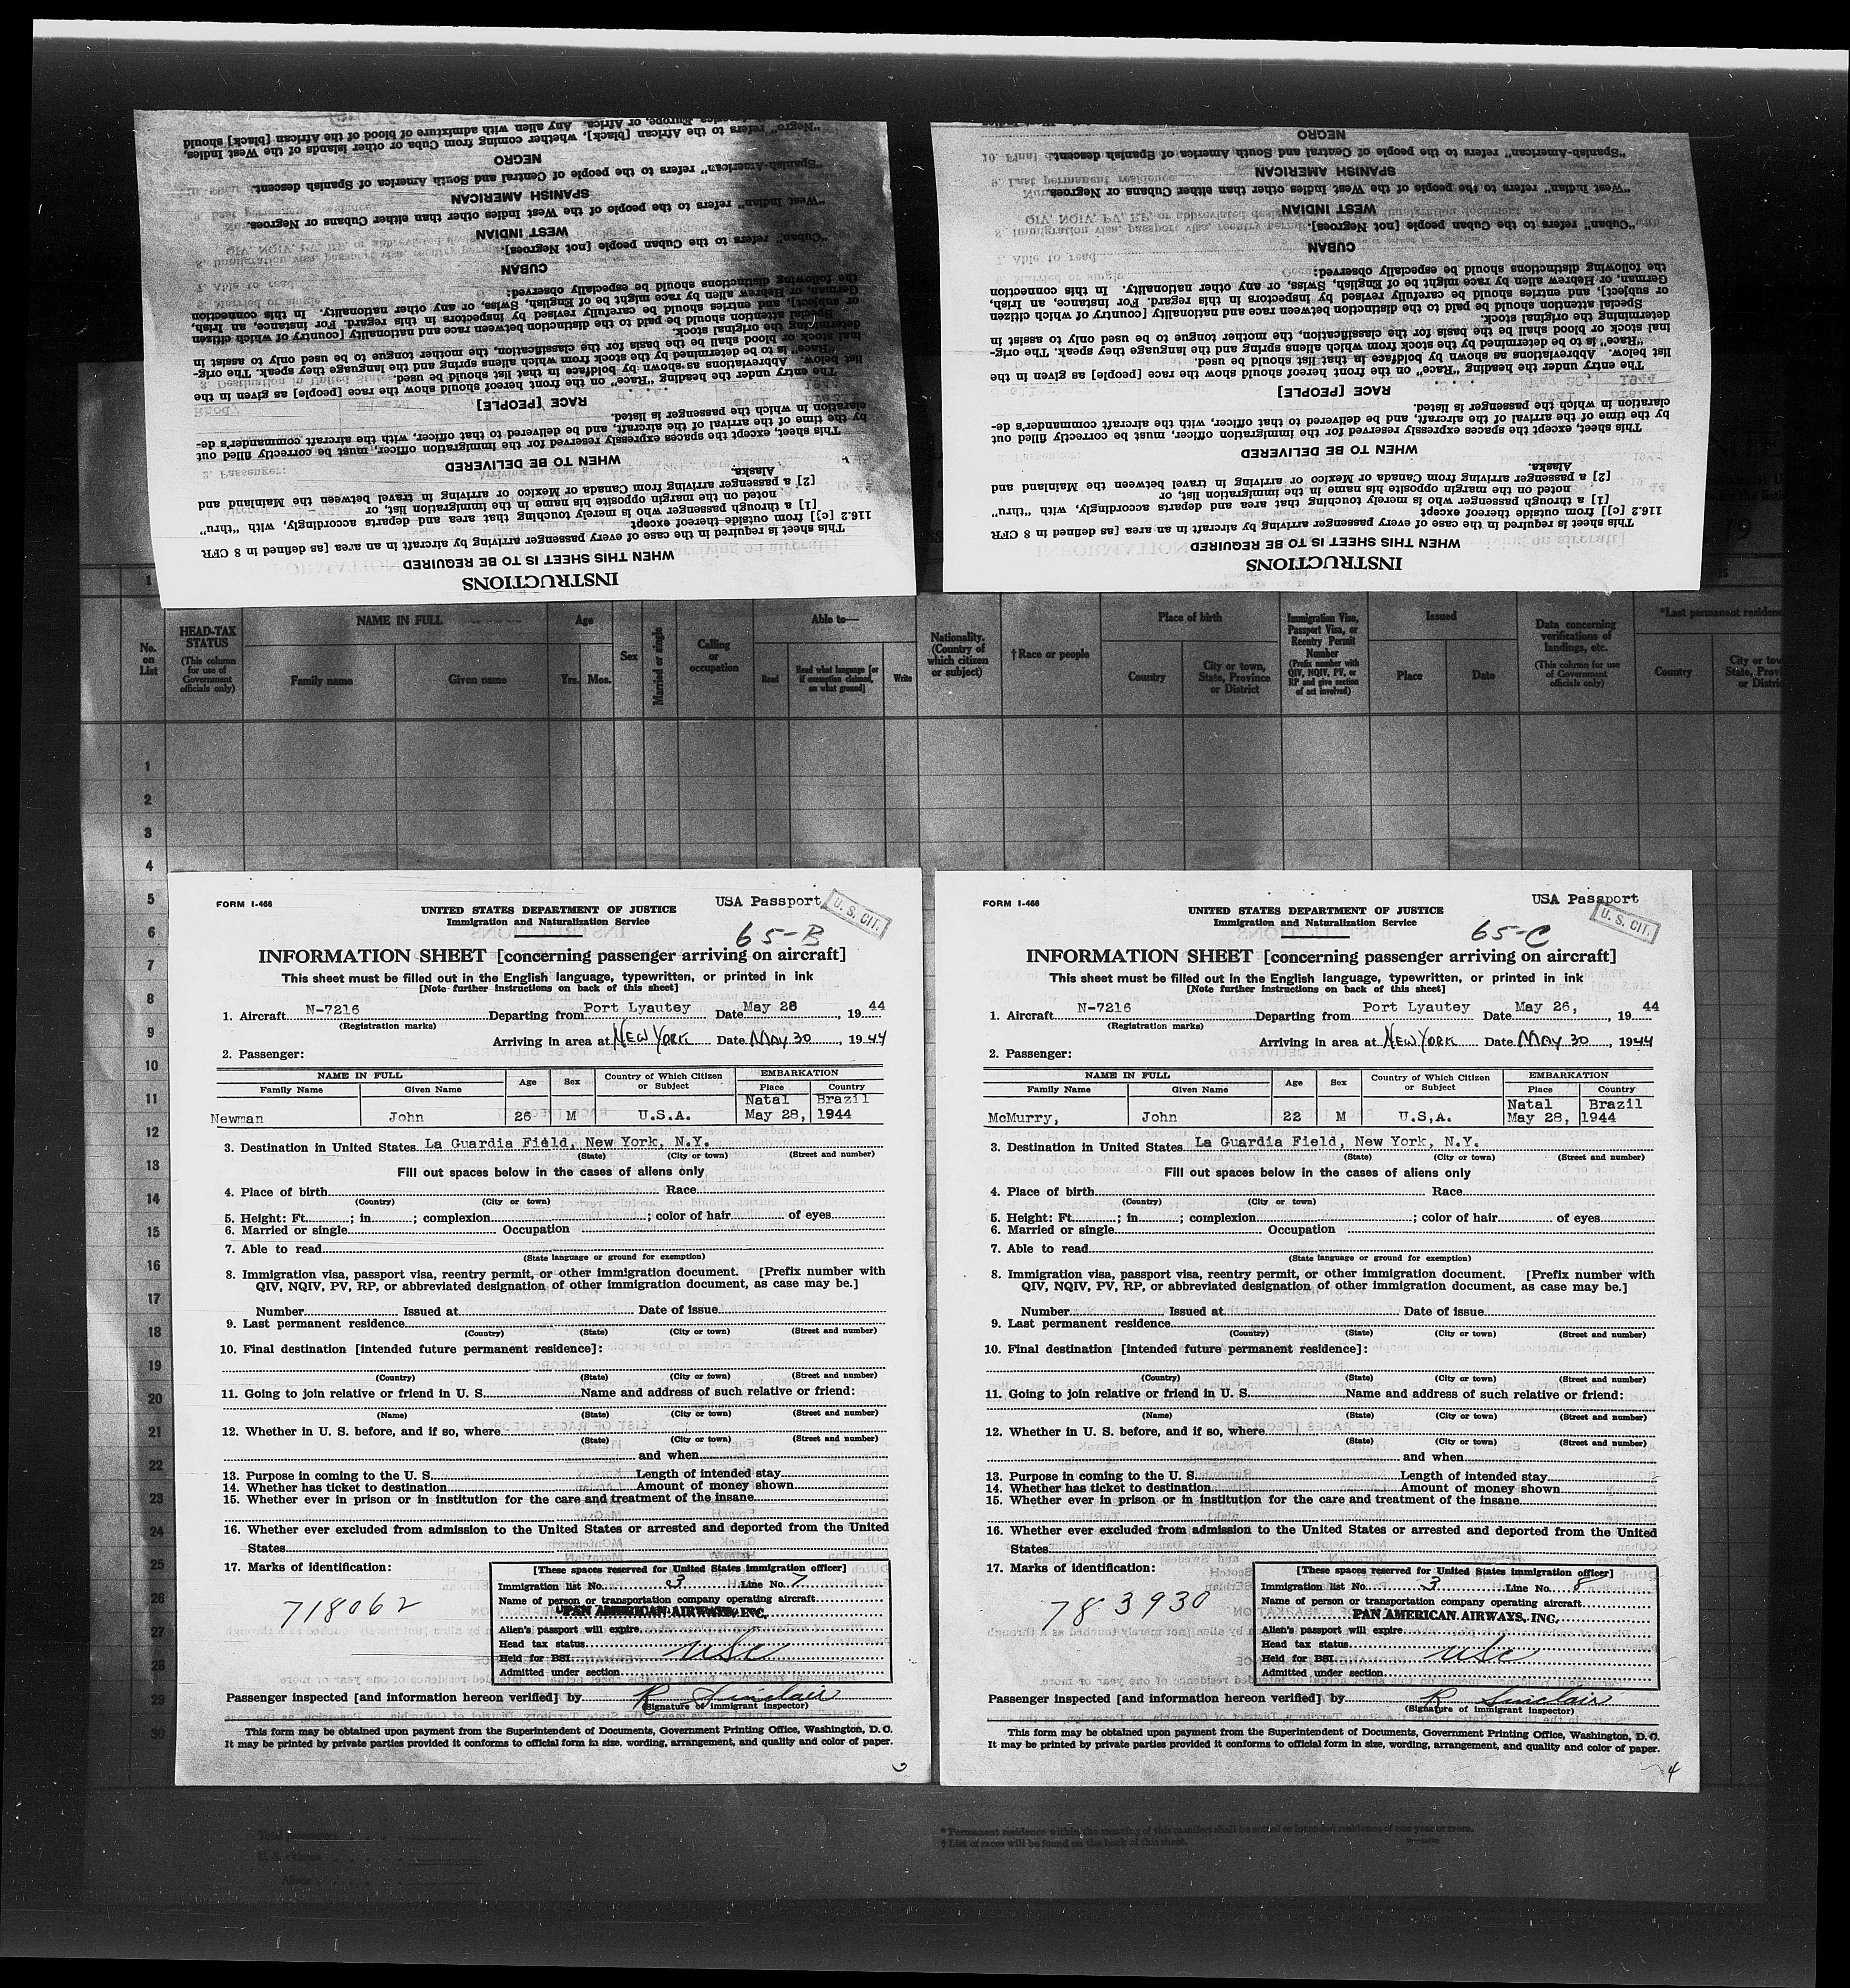 INSTRUCTIONS
WHEN THIS SHEET IS TO BE REQUIRED
This sheet is required in the case of every passenger arriving by aircraft in an area [as defined in 8 CFR
116.2 [c]] from outside thereof except
[1] a through passenger who is merely touching that area and departs accordingly, with "thru"
noted on the margin opposite his name in the immigration list, or
[2] a passenger arriving from Canada or Mexico or arriving in travel between the Mainland and
Alaska.
WHEN TO BE DELIVERED
This sheet, except the spaces expressly reserved for the immigration officer, must be correctly filled out
by the time of the arrival of the aircraft, and be delivered to that officer, with the aircraft commander's de-
claration in which the passenger is listed.
RACE [PEOPLE]
The entry under the heading "Race" on the front hereof should show the race [people] as given in the
list below. Abbreviations as shown by boldface in that list should be used.
"Race" is to be determined by the stock from which aliens spring and the language they speak. The orig-
inal stock or blood shall be the basis for the classification, the mother tongue to be used only to assist in
determining the original stock.
Special attention should be paid to the distinction between race and nationality [country of which citizen
or subject], and entries should be carefully revised by inspectors in this regard. For instance, an Irish,
German, or Hebrew alien by race might be of English, Swiss, or any other nationality. In this connection
the following distinctions should be especially observed:
CUBAN
"Cuban" refers to the Cuban people [not Negroes].
WEST INDIAN
"West Indian" refers to the people of the West Indies other than either Cubans or Negroes.
SPANISH AMERICAN
"Spanish-American" refers to the people of Central and South America of Spanish descent.
NEGRO
"Negro" refers to the African [black], whether coming from Cuba or other islands of the West Indies,
Europe, or Africa. Any alien with admixture of blood of the African [black] should
INSTRUCTIONS
WHEN THIS SHEET IS TO BE REQUIRED
This sheet is required in the case of every passenger arriving by aircraft in an area [as defined in 8 CFR
116.2 [c]] from outside thereof except
[1] a through passenger who is merely touching that area and departs accordingly, with "thru"
noted on the margin opposite his name in the immigration list, or
[2] a passenger arriving from Canada or Mexico or arriving in travel between the Mainland and
Alaska.
WHEN TO BE DELIVERED
This sheet, except the spaces expressly reserved for the immigration officer, must be correctly filled out
by the time of the arrival of the aircraft, and be delivered to that officer, with the aircraft commander's de-
claration in which the passenger is listed.
RACE [PEOPLE]
The entry under the heading "Race" on the front hereof should show the race [people] as given in the
list below. Abbreviations as shown by boldface in that list should be used.
"Race" is to be determined by the stock from which aliens spring and the language they speak. The orig-
inal stock or blood shall be the basis for the classification, the mother tongue to be used only to assist in
determining the original stock.
Special attention should be paid to the distinction between race and nationality [country of which citizen
or subject], and entries should be carefully revised by inspectors in this regard. For instance, an Irish,
German, or Hebrew alien by race might be of English, Swiss, or any other nationality. In this connection
the following distinctions should be especially observed:
CUBAN
"Cuban" refers to the Cuban people [not Negroes].
WEST INDIAN
"West Indian" refers to the people of the West Indies other than either Cubans or Negroes.
SPANISH AMERICAN
"Spanish-American" refers to the people of Central and South America of Spanish descent.
NEGRO
No. on List
HEAD-TAX STATUS
(This column for use of Government officials only)
NAME IN FULL
Family name
Given name
Age
Yrs. Mos.
Sex
Married or single
Calling or occupation
Able to—
Read
Read what language [or if exemption claimed, on what ground]
Write
Nationality. (Country of which citizen or subject)
†Race or people
Place of birth
Country
City or town, State, Province or District
Immigration Visa, Passport Visa, or Reentry Permit Number
(Prefix number with QIV, NQIV, PV, or RP and give section of act involved)
Issued
Place
Date
Data concerning verifications of landings, etc.
(This column for use of Government officials only)
*Last permanent residence
Country
1
2
3
4
5
6
7
8
9
10
11
12
13
14
15
16
17
18
19
20
21
22
23
24
25
26
27
28
29
30
FORM I-466
USA Passport
U. S. CIT.
UNITED STATES DEPARTMENT OF JUSTICE
Immigration and Naturalization Service
65-B
INFORMATION SHEET [concerning passenger arriving on aircraft]
This sheet must be filled out in the English language, typewritten, or printed in ink
[Note further instructions on back of this sheet]
1. Aircraft N-7216 Departing from Port Lyautey Date May 28, 1944
(Registration marks)
Arriving in area at New York Date May 30, 1944
2. Passenger:
NAME IN FULL Age Sex Country of Which Citizen or Subject EMBARKATION
Family Name Given Name Place Country
Natal Brazil
Newman John 26 M U.S.A. May 28, 1944
3. Destination in United States La Guardia Field, New York, N.Y.
(State) (City or town) (Street and number)
Fill out spaces below in the cases of aliens only
4. Place of birth Race
(Country) (City or town)
5. Height: Ft. ; in. ; complexion ; color of hair of eyes
6. Married or single Occupation
7. Able to read
(State language or ground for exemption)
8. Immigration visa, passport visa, reentry permit, or other immigration document. [Prefix number with
QIV, NQIV, PV, RP, or abbreviated designation of other immigration document, as case may be.]
Number Issued at Date of issue
9. Last permanent residence
(Country) (State) (City or town) (Street and number)
10. Final destination [intended future permanent residence]:
(Country) (State) (City or town) (Street and number)
11. Going to join relative or friend in U. S. Name and address of such relative or friend:
(Name) (State) (City or town) (Street and number)
12. Whether in U. S. before, and if so, where
(State) (City or town) (Street and number)
and when
13. Purpose in coming to the U. S. Length of intended stay
14. Whether has ticket to destination Amount of money shown
15. Whether ever in prison or in institution for the care and treatment of the insane
16. Whether ever excluded from admission to the United States or arrested and deported from the United
States
17. Marks of identification:
718062
[These spaces reserved for United States immigration officer]
Immigration list No. 3 Line No. 7
Name of person or transportation company operating aircraft
PAN AMERICAN AIRWAYS, INC.
Alien's passport will expire
Head tax status
Held for BSI USC
Admitted under section
Passenger inspected [and information hereon verified] by R Sinclair
(Signature of immigrant inspector)
This form may be obtained upon payment from the Superintendent of Documents, Government Printing Office, Washington, D. C.
It may be printed by private parties provided it conforms to official form in size, wording, arrangement, and quality and color of paper.
FORM I-466
USA Passport
U. S. CIT.
UNITED STATES DEPARTMENT OF JUSTICE
Immigration and Naturalization Service
65-C
INFORMATION SHEET [concerning passenger arriving on aircraft]
This sheet must be filled out in the English language, typewritten, or printed in ink
[Note further instructions on back of this sheet]
1. Aircraft N-7216 Departing from Port Lyautey Date May 26, , 1944
(Registration marks)
Arriving in area at New York Date May 30, 1944
2. Passenger:
NAME IN FULL Age Sex Country of Which Citizen or Subject EMBARKATION
Family Name Given Name Place Country
Natal Brazil
McMurry, John 22 M U.S.A. May 28, 1944
3. Destination in United States La Guardia Field, New York, N.Y.
(State) (City or town) (Street and number)
Fill out spaces below in the cases of aliens only
4. Place of birth Race
(Country) (City or town)
5. Height: Ft. ; in. ; complexion ; color of hair of eyes
6. Married or single Occupation
7. Able to read
(State language or ground for exemption)
8. Immigration visa, passport visa, reentry permit, or other immigration document. [Prefix number with
QIV, NQIV, PV, RP, or abbreviated designation of other immigration document, as case may be.]
Number Issued at Date of issue
9. Last permanent residence
(Country) (State) (City or town) (Street and number)
10. Final destination [intended future permanent residence]:
(Country) (State) (City or town) (Street and number)
11. Going to join relative or friend in U. S. Name and address of such relative or friend:
(Name) (State) (City or town) (Street and number)
12. Whether in U. S. before, and if so, where
(State) (City or town) (Street and number)
and when
13. Purpose in coming to the U. S. Length of intended stay
14. Whether has ticket to destination Amount of money shown
15. Whether ever in prison or in institution for the care and treatment of the insane
16. Whether ever excluded from admission to the United States or arrested and deported from the United
States
17. Marks of identification:
783930
[These spaces reserved for United States immigration officer]
Immigration list No. 3 Line No. 8
Name of person or transportation company operating aircraft
PAN AMERICAN AIRWAYS, INC.
Alien's passport will expire
Head tax status
Held for BSI USC
Admitted under section
Passenger inspected [and information hereon verified] by R Sinclair
(Signature of immigrant inspector)
This form may be obtained upon payment from the Superintendent of Documents, Government Printing Office, Washington, D. C.
It may be printed by private parties provided it conforms to official form in size, wording, arrangement, and quality and color of paper.
4
* Permanent residence within the meaning of this manifest shall be actual or intended residence of one year or more.
† List of races will be found on the back of this sheet.